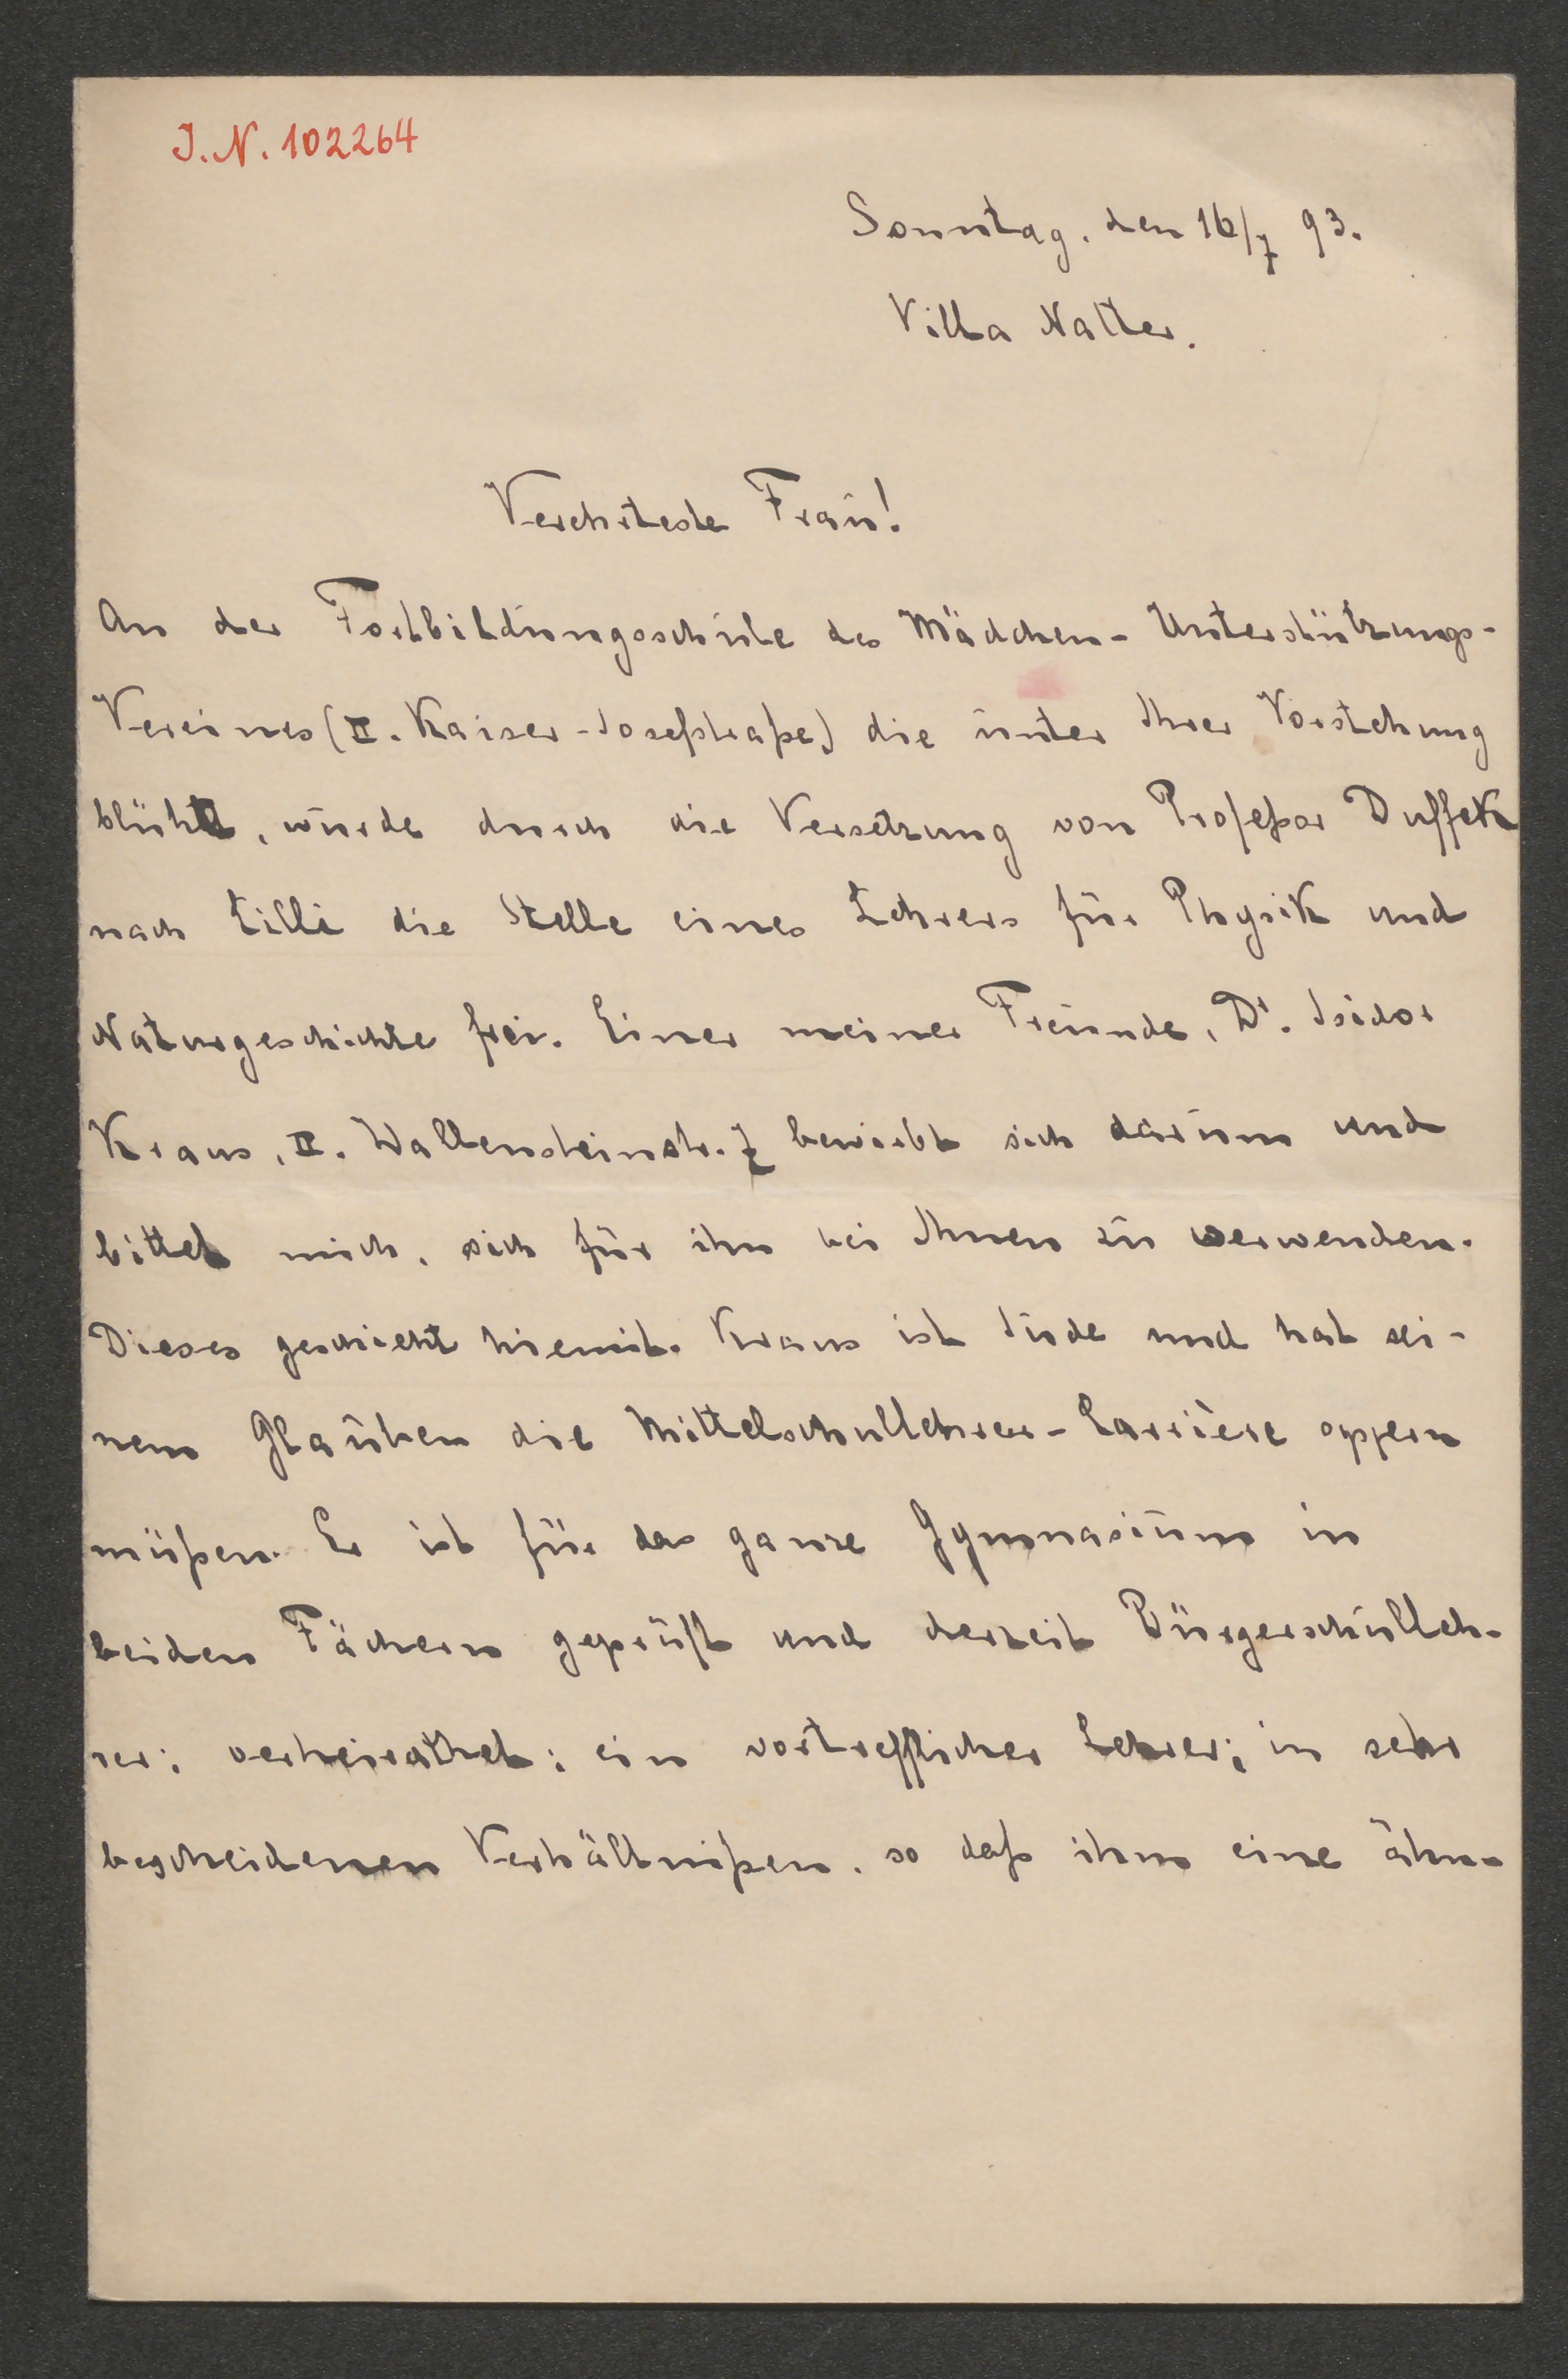 J. N. 102264
Sonntag, den 16/7 93.
Villa Natter.
Verehrteste Frau!
An der Fortbildungsschule des Mädchen-Unterstützungs-
Vereines (II. Kaiser-Josefstraße) die unter Ihrer Vorstehung
blüht, wurde durch die Versetzung von Profeßor Duffek
nach Cilli die Stelle eines Lehrers für Physik und
Naturgeschichte frei. Einer meiner Freunde, Dr. Isidor
Kraus, II. Wallensteinstr. 7 bewirbt sich darum und
bittet mich, sich für ihn bei Ihnen zu verwenden.
Dieses geschieht hiemit. Kraus ist Jude und hat sei-
nem Glauben die Mittelschullehrer-Carrière opfern
müßen. Er ist für das ganze Gymnasium in
beiden Fächern geprüft und derzeit Bürgerschulleh-
rer; verheirathet; ein vortrefflicher Lehrer; in sehr
bescheidenen Verhältnißen, so daß ihm eine ähn-